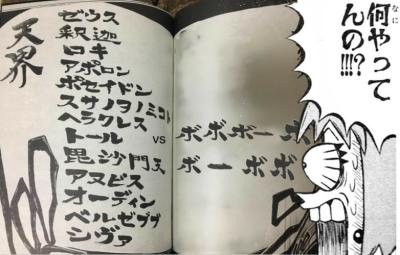 天界
ゼウス
釈迦
ロキ
アポロン
ポセイドン
スサノヲノミコト
ヘラクレス
トール
毘沙門天
アヌビス
オーディン
ベルゼブブ
シヴァ
VS
ボボボーボ
ボーボボ
なに
何やって
んの!!!?